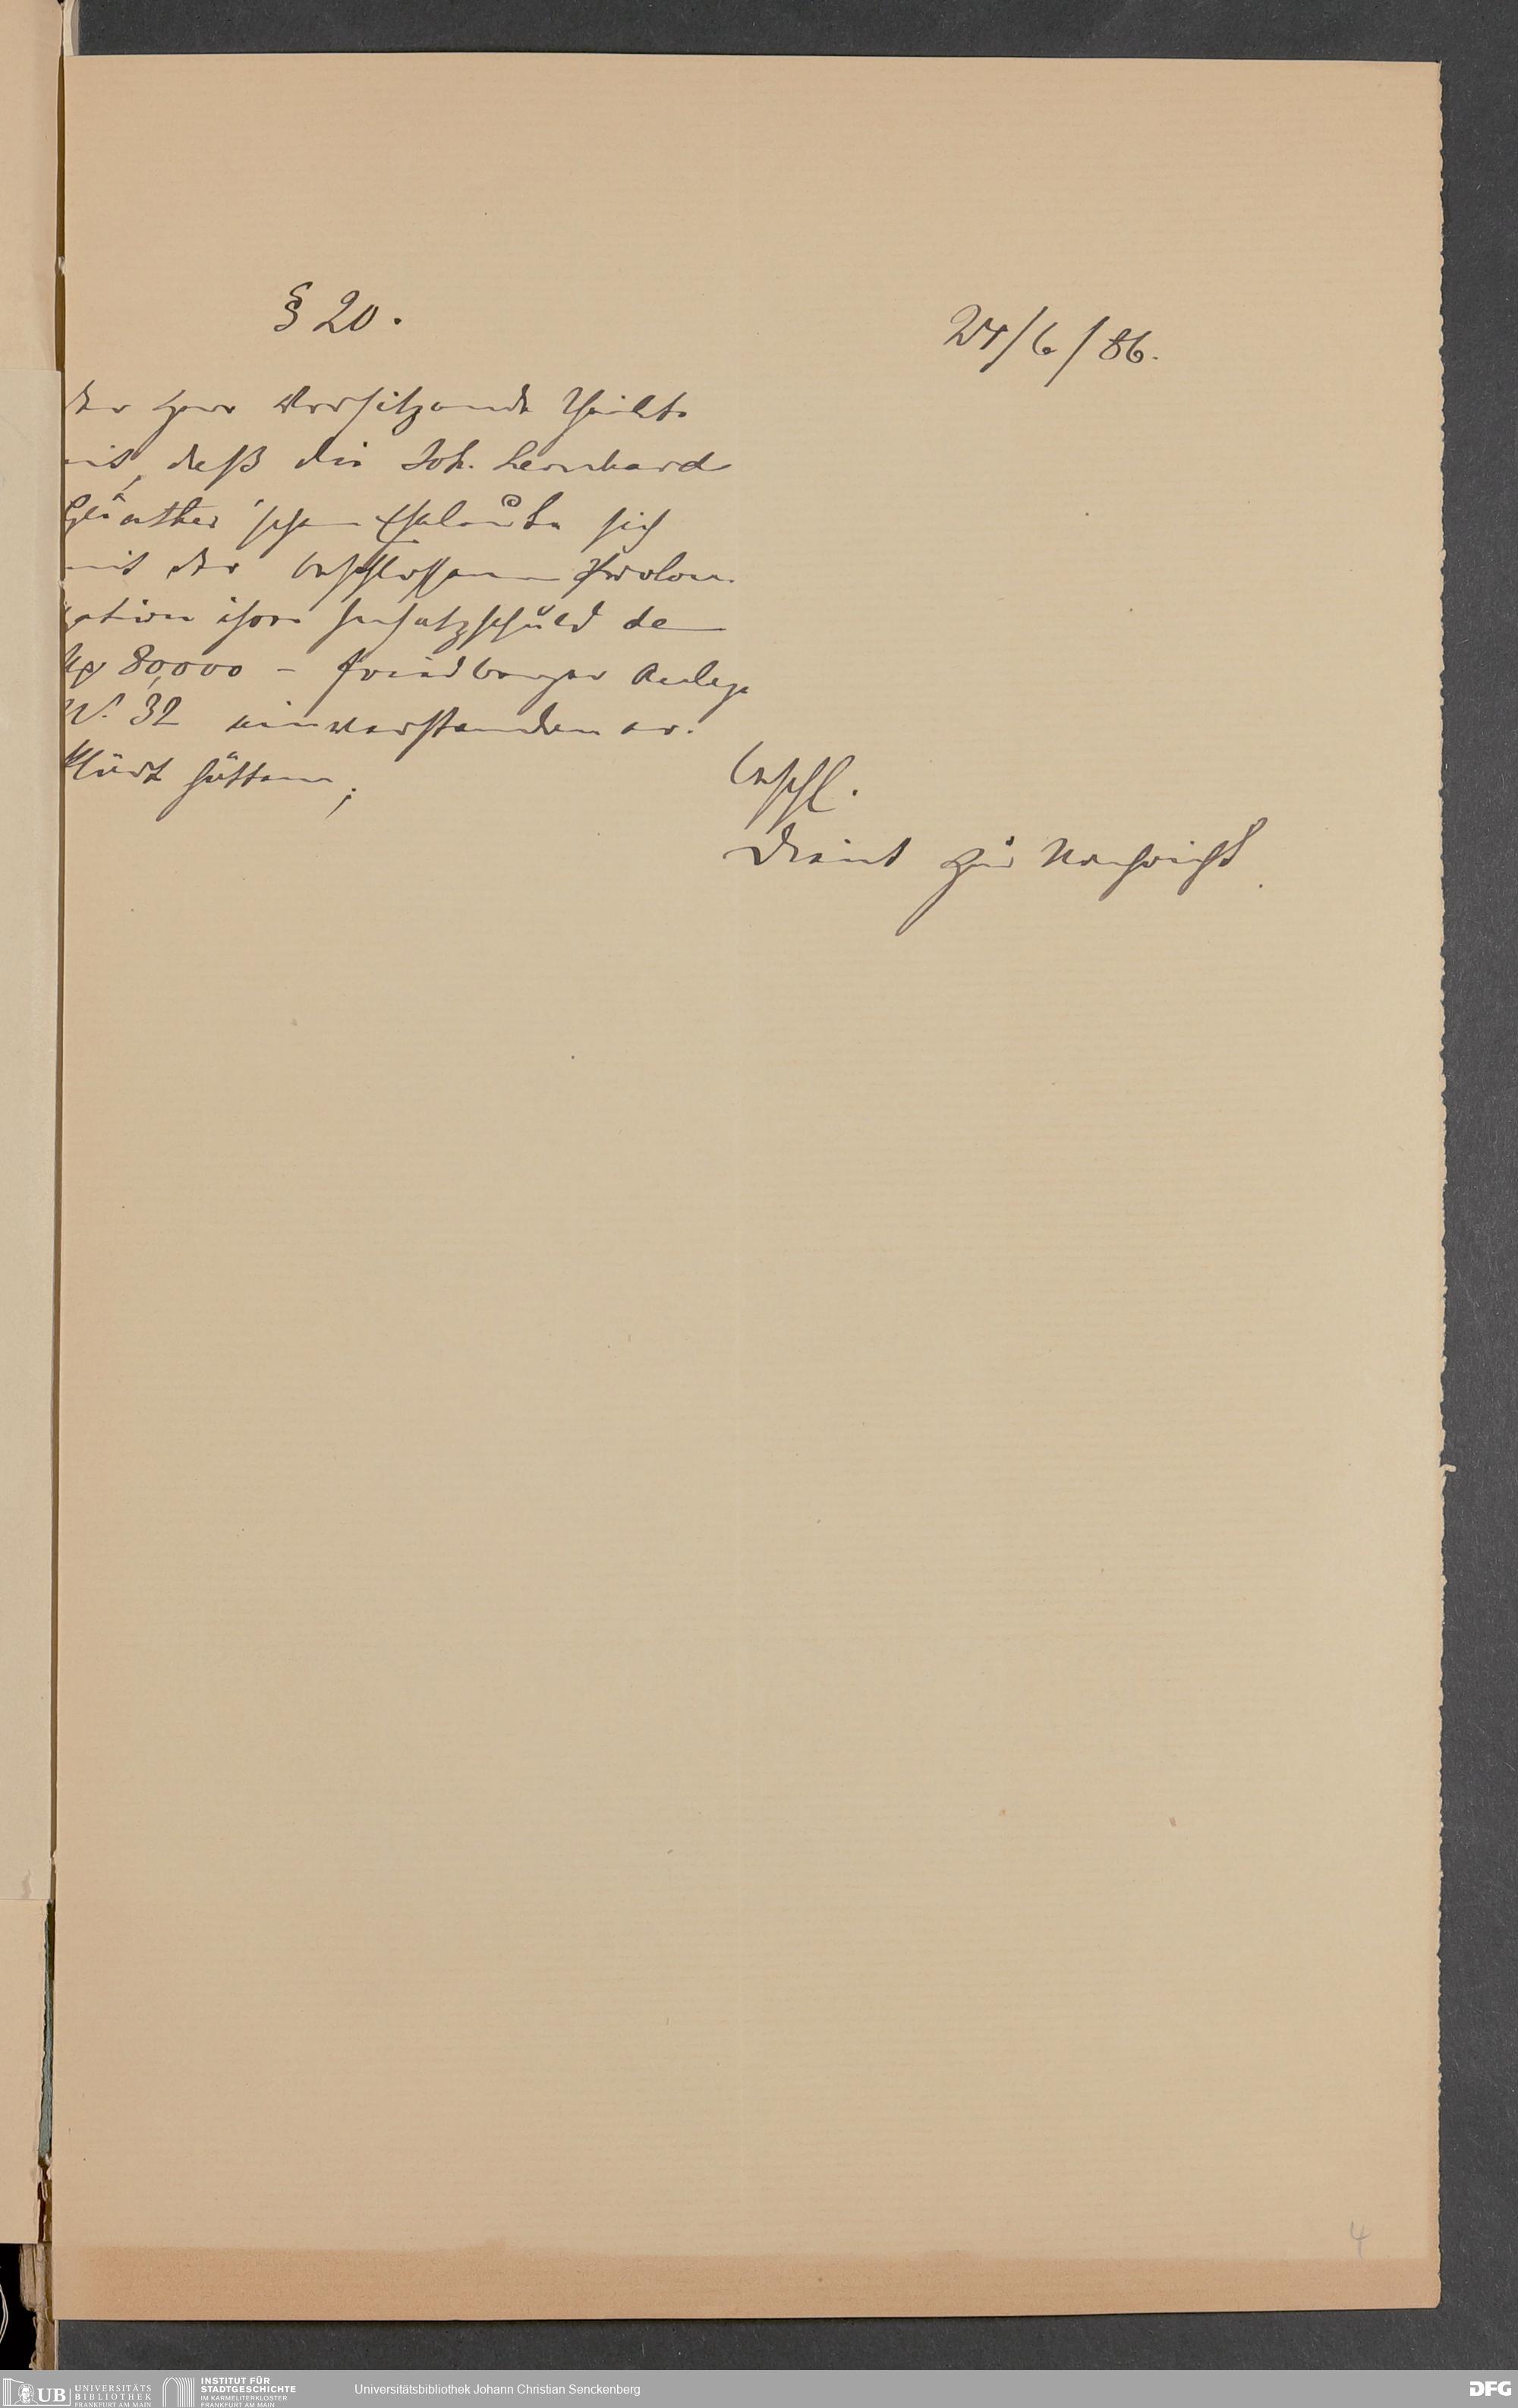 § 20.
24/6/86.
der Herr Vorsitzende theilte
mit, daß die Joh. Leonhard
Günther'schen Eheleute sich
mit der beschlossenen Prolon-
gation ihrer Insatzschuld de
Mk 80,000 – Friedberger Anlage
N. 32 einverstanden er-
klärt hätten;
beschl.
Dient zur Nachricht.
4
UB UNIVERSITÄTS BIBLIOTHEK FRANKFURT AM MAIN
INSTITUT FÜR STADTGESCHICHTE IM KARMELITERKLOSTER FRANKFURT AM MAIN
Universitätsbibliothek Johann Christian Senckenberg
DFG